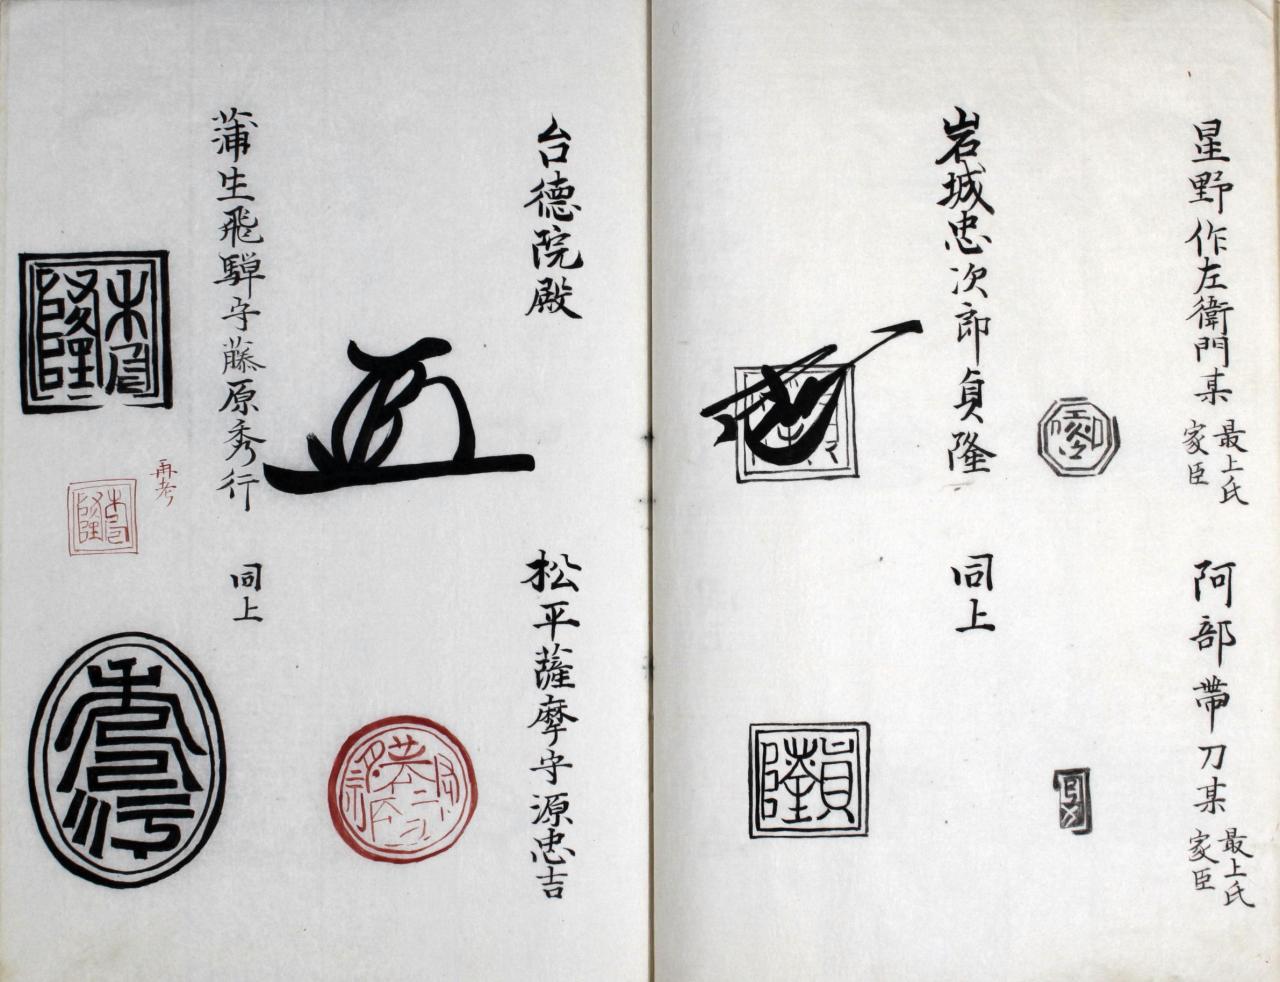 星野作左衛門某
最上氏
家臣
阿部帯刀某
最上氏
家臣
岩城忠次郎貞隆
同上
貞隆
台徳院殿
松平薩摩守源忠吉
蒲生飛騨守藤原秀行
同上
再考
秀行